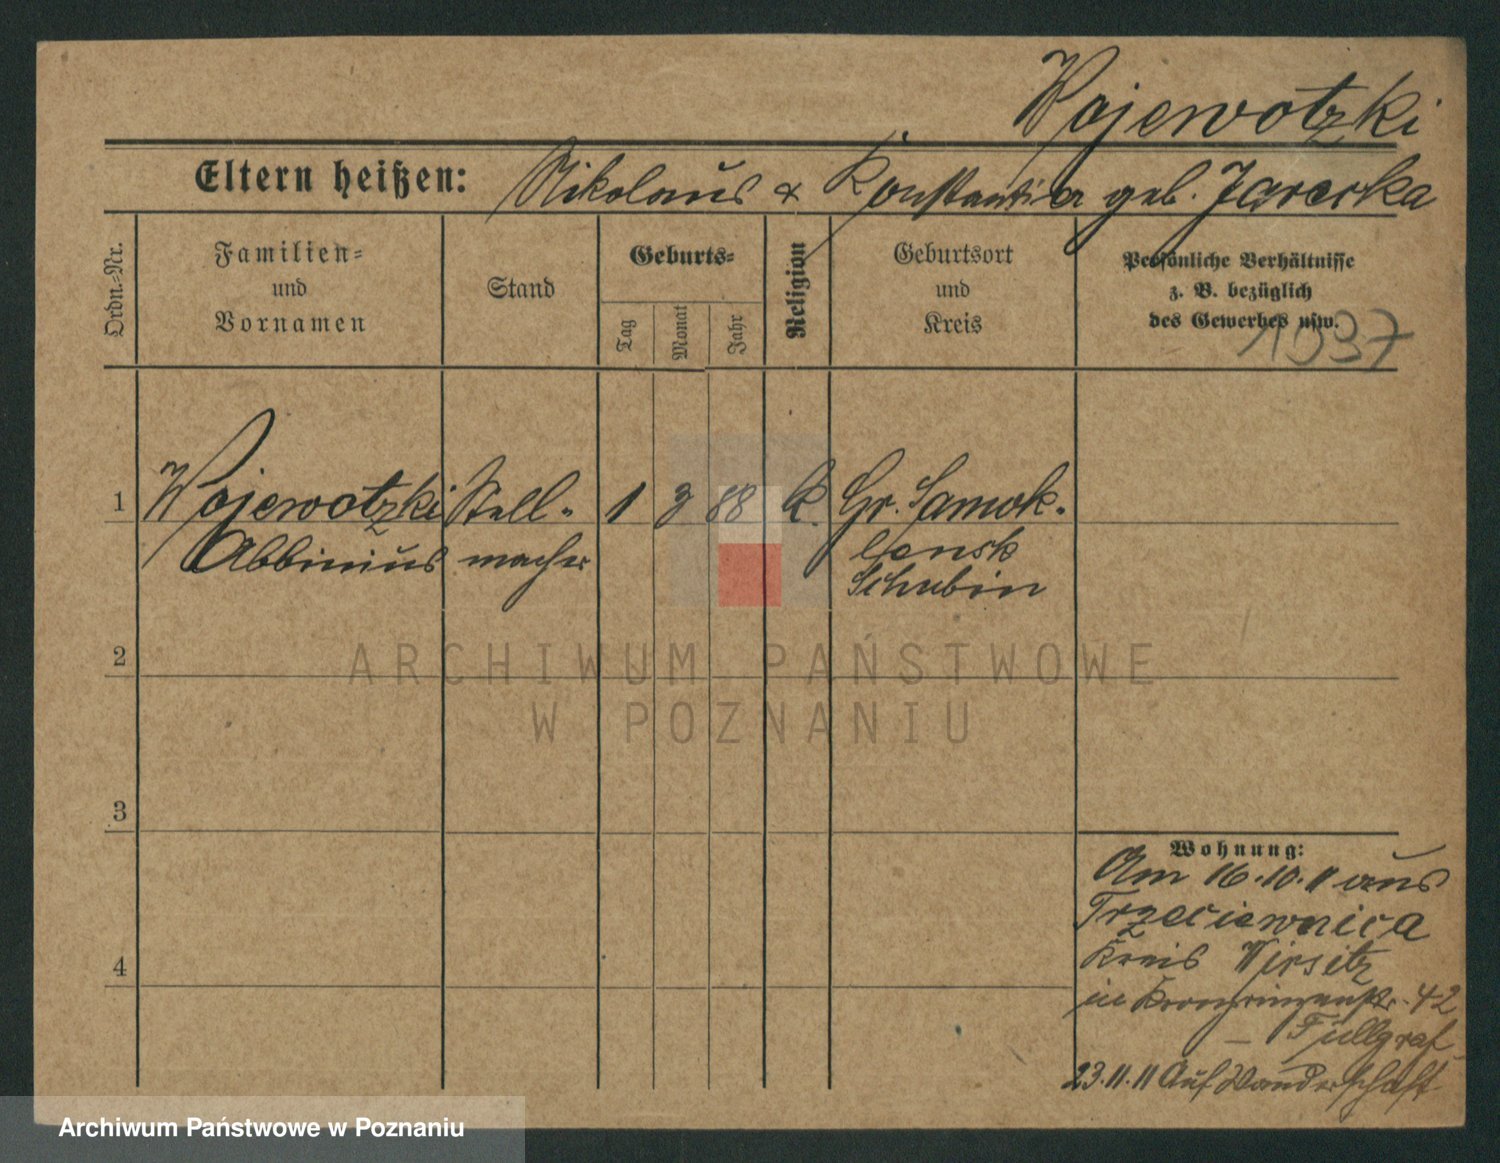 Wojewotzki
Eltern heißen: Nikolaus & Konstantia geb. Jarecka
Ordn.-Nr.
Familien-
und
Vornamen
Stand
Geburts-
Tag
Monat
Jahr
Religion
Geburtsort
und
Kreis
Persönliche Verhältnisse
z. B. bezüglich
des Gewerbes usw.
1937
1 Wojewotzki Stell- 1 3 88 K. Gr. Samok-
Abbinius macher lensk
Schubin
2
3
4
Wohnung:
Am 16.10.11 aus
Trzeciewnica
Kreis Wirsitz
in Kronprinzenstr. 42
– Füllgraf
23.11.11 Auf Wanderschaft
ARCHIWUM PAŃSTWOWE
W POZNANIU
Archiwum Państwowe w Poznaniu